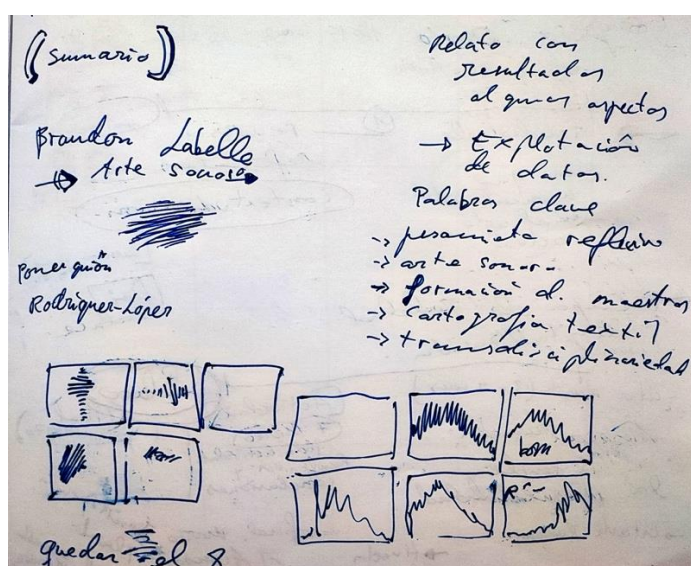 (Sumario)
Brandon Labelle
→ Arte sonoro
Poner guión
Rodríguez-López
Relato con
resultados
algunos aspectos
→ Explotación
de datos.
Palabras clave
→ reflexivo
→ arte sonoro
→ formación d. maestros
→ cartografía textil
→ transdisciplinariedad
quedar el 8